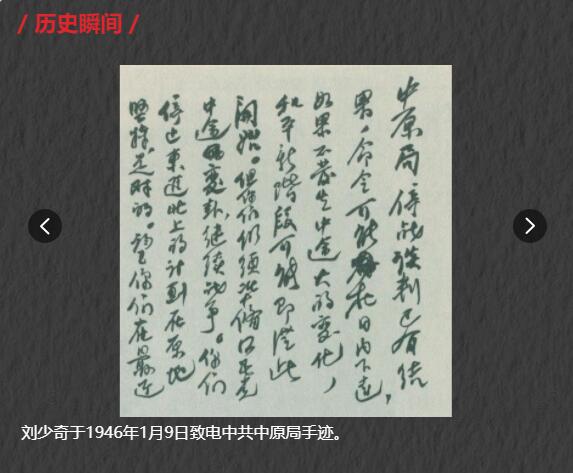 / 历史瞬间 /
中原局停战谈判已有结
果，命令可能在日内下达，
如果不发生中途大的变化，
和平新階段可能即從此
開始。但你们仍须准備
中途变卦，继续战争。你们
停止東進北上的计划在原地
坚持，是对的。望你们在最近
刘少奇于1946年1月9日致电中共中原局手迹。